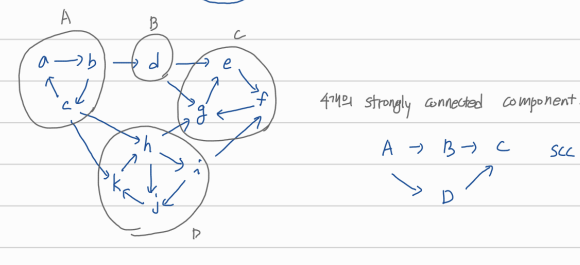 A
B
C
a → b → d → e
c
g
f
h
k
i
j
D
4개의 strongly connected component
A → B → C SCC
D